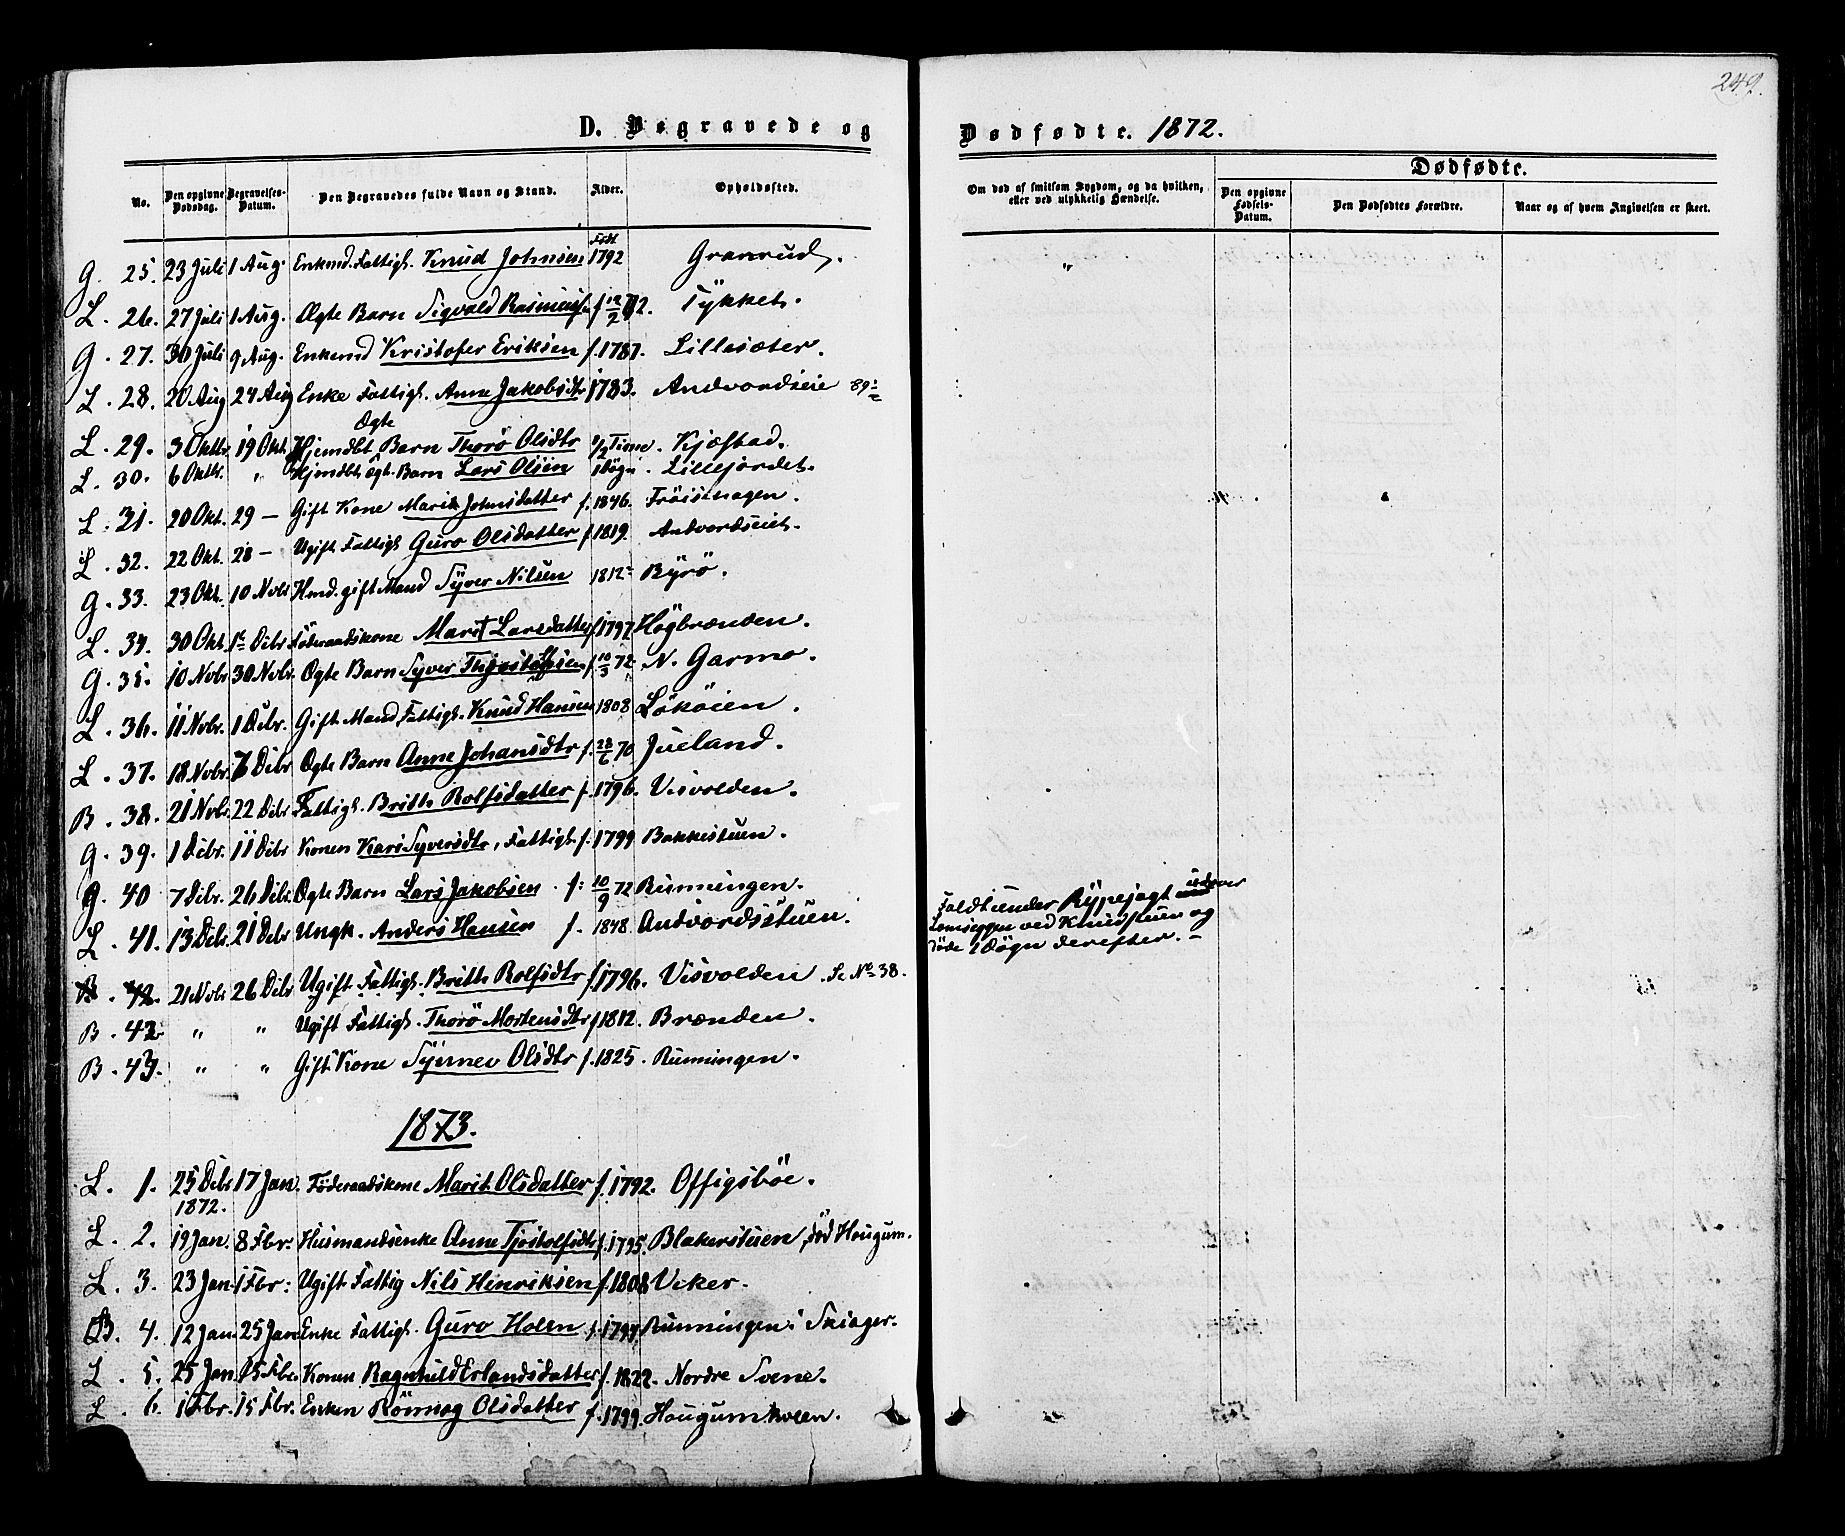 249.
D. Begravede og Dødfødte. 1872.
No. Den opgivne Dødsdag. Begravelses-Datum. Den Begravedes fulde Navn og Stand. Alder. Opholdssted.
Om død af smitsom Sygdom, og da hvilken, eller ved ulykkelig Hændelse.
Dødfødte.
Den opgivne Fødsels-Datum. Den Dødfødtes Forældre. Naar og af hvem Angivelsen er skeet.
G. 25. 23 Juli 1 Aug. Enkmd. Fattigl. Knud Johnsen Født 1792 Granrud.
L. 26. 27 Juli 1 Aug. Ægte Barn Sigvald Rasmus f 12/2 72. Tykket.
G. 27. 30 Juli 9 Aug. Enkemd Kristofer Eriksen f. 1787. Lillesæter.
L. 28. 20 Aug 24 Aug Enke Fattigl. Anne Jakobsdtr 1783. Andvordseie 89
L. 29. 3 Oktbr 19 Okt. Hjemdbt Ægte Barn Thorö Olsdtr 1/2 Time. Kjæstad.
L. 30. 6 Oktbr. " Hjemdbt ægt. Barn Lars Olsen 1 Døgn. Lillejordet.
L. 31. 20 Okt. 29 — Gift Kone Marit Johnsdatter f. 1846. Fröisehagen.
L. 32. 22 Okt. 28 — Ugift Fattigl Guro Olsdatter f 1819. Andvordseiet.
G. 33. 23 Okt. 10 Novbr Hmd. gift Mand Syver Nilsen 1812 Byrö.
L. 34. 30 Okt. 1 Decbr Föderaadskone Marit Larsdatter f 1797 Högbrænden.
G. 35. 10 Novbr 30 Novbr. Ægte Barn Syver Thorstensen f. 10/3 72 N. Garmo.
L. 36. 11 Novbr. 1 Decbr. Gift Mand Fattigl. Knud Hansen 1808 Lököien.
L. 37. 18 Novbr. 7 Decbr Ægte Barn Anne Johansdtr f. 28/6 70 Jueland.
B. 38. 21 Novbr. 22 Decbr Fattigl. Brith Rolfsdatter f. 1796. Visvolden.
G. 39. 1 Decbr. 11 Decbr Konen Kari Syversdtr, Fattigl. f. 1799 Bakkestuen.
G. 40 7 Decbr. 26 Decbr. Ægte Barn Lars Jakobsen. f: 10/9 72 Runningen.
L. 41. 13 Decbr. 21 Decbr Ungk. Anders Hansen f. 1848. Andvordsstuen. Faldt under Rypejagt udover
Lomseggen ved Knudstuen og
døde 1 Døgn derefter. —
B. 42. 21 Novbr 26 Decbr Ugift Fattigl. Brith Rolfsdtr f. 1796. Visvolden. Se No 38.
B. 42. " " Ugift Fattigl. Thorö Mortensdtr f 1812. Brænden.
B. 43. " " Gift Kone Syinev Olsdtr f. 1825. Runningen.
1873.
L. 1. 25 Decbr 1872. 17 Jan. Föderaadskone Marit Olsdatter f. 1792. Offigsböe.
L. 2. 19 Jan. 8 Fbr. Husmandsenke Anne Tjostolfsdtr f. 1795. Blakerstuen, död Hougum.
L. 3. 23 Jan. 1 Fbr: Ugift Fattig Nils Henriksen f. 1808 Veker.
B. 4. 12 Jan 25 Jan Enke Fattigl. Guro Holen f. 1794. Runningen i Skiager.
L. 5. 25 Jan 15 Fbr. Konen Ragnhild Erlandsdatter f. 1822. Nordre Svene.
L. 6. 1 Fbr. 15 Fbr. Enken Rönnog Olsdatter f. 1799. Hougumkveen.